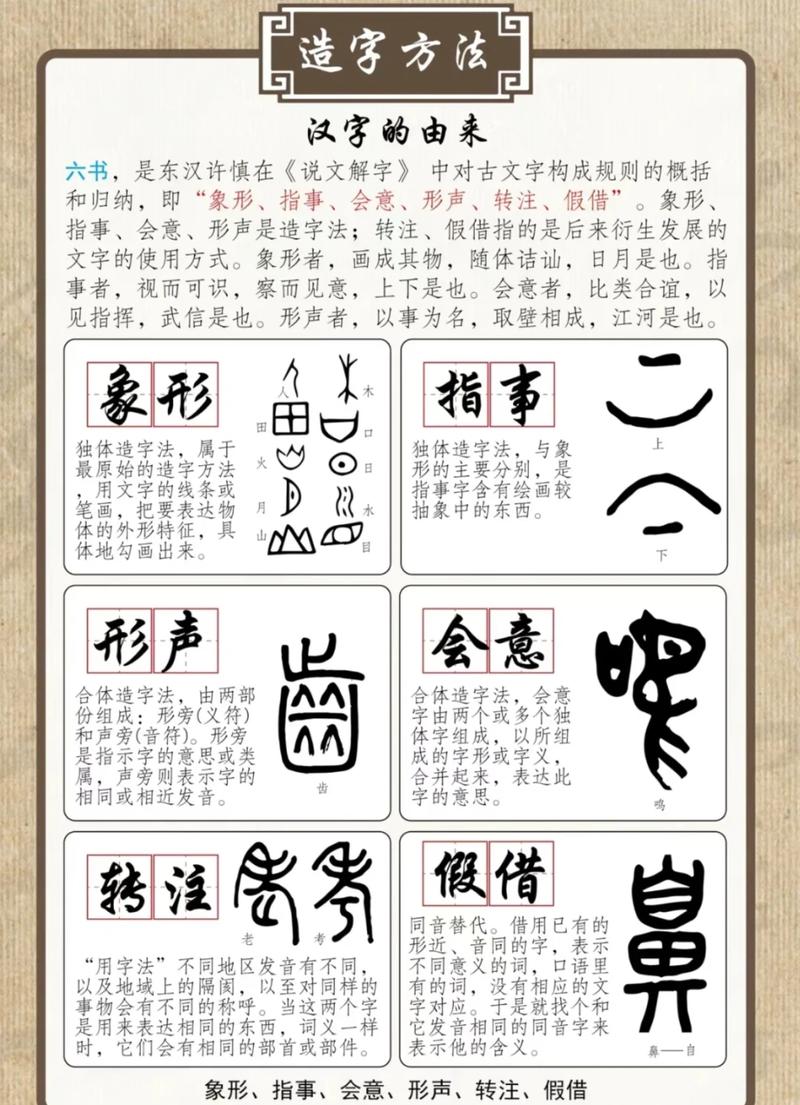 造字方法
汉字的由来
六书，是东汉许慎在《说文解字》 中对古文字构成规则的概括
和归纳，即“象形、指事、会意、形声、转注、假借”。象形、
指事、会意、形声是造字法；转注、假借指的是后来衍生发展的
文字的使用方式。象形者，画成其物，随体诘讪，日月是也。指
事者，视而可识，察而见意，上下是也。会意者，比类合谊，以
见指挥，武信是也。形声者，以事为名，取壁相成，江河是也。
象形
独体造字法，属于
最原始的造字方法
，用文字的线条或
笔画，把要表达物
体的外形特征，具
体地勾画出来。
人
木
田
口
火
日
月
水
山
目
指事
独体造字法，与象
形的主要分别，是
指事字含有绘画较
抽象中的东西。
上
下
形声
合体造字法，由两部
份组成：形旁(义符)
和声旁(音符)。形旁
是指示字的意思或类
属，声旁则表示字的
相同或相近发音。
齿
会意
合体造字法，会意
字由两个或多个独
体字组成，以所组
成的字形或字义，
合并起来，表达此
字的意思。
鸣
转注
老
考
“用字法”不同地区发音有不同，
以及地域上的隔阂，以至对同样的
事物会有不同的称呼。当这两个字
是用来表达相同的东西，词义一样
时，它们会有相同的部首或部件。
假借
同音替代。借用已有的
形近、音同的字，表示
不同意义的词，口语里
有的词，没有相应的文
字对应。于是就找个和
它发音相同的同音字来
表示他的含义。
鼻——自
象形、指事、会意、形声、转注、假借